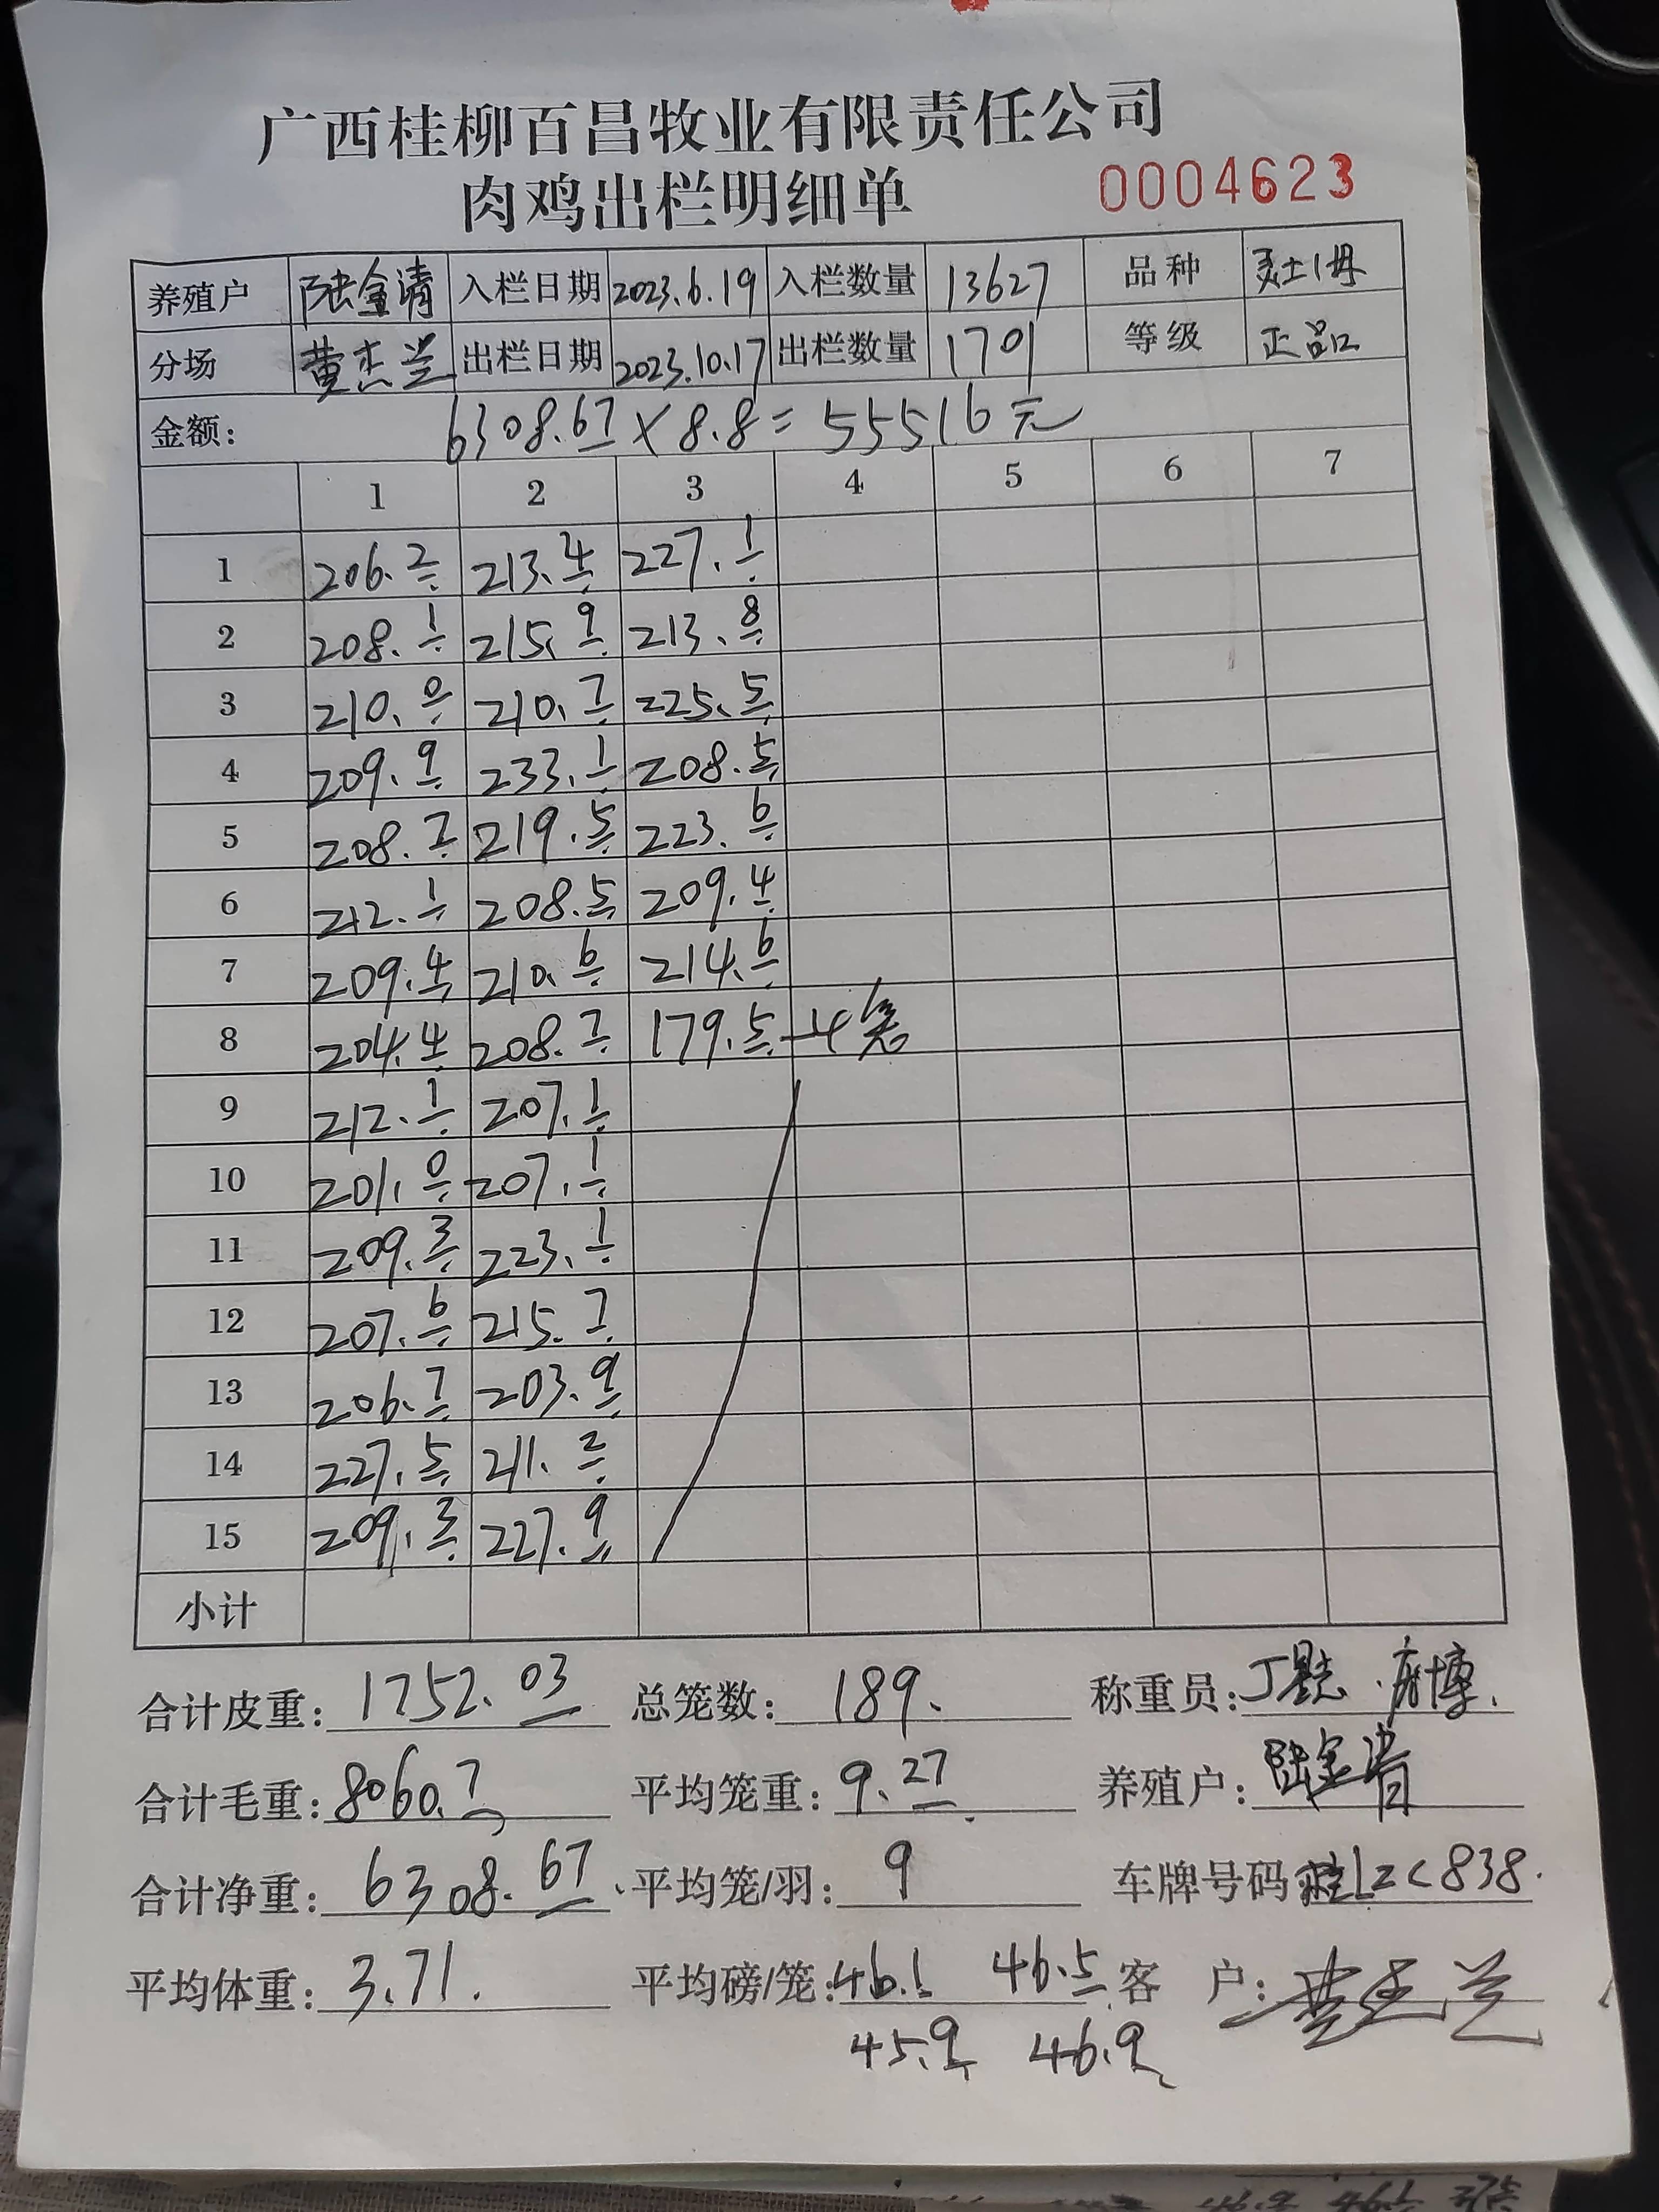 广西桂柳百昌牧业有限责任公司
肉鸡出栏明细单 0004623
养殖户 陆金清 入栏日期 2023.6.19 入栏数量 13627 品种
分场 黄杰兰 出栏日期 2023.10.17 出栏数量 1701 等级 正品
金额: 6308.67×8.8=55516元
1 2 3 4 5 6 7
1 206.2 213.4 227.1
2 208.1 215.9 213.8
3 210.0 210.7 225.5
4 209.9 233.1 208.5
5 208.7 219.5 223.6
6 212.1 208.5 209.4
7 209.4 210.6 214.6
8 204.4 208.7 179.5-4笼
9 212.1 207.1
10 201.0 207.1
11 209.3 223.1
12 207.6 215.7
13 206.7 203.9
14 227.5 211.2
15 209.3 227.9
小计
合计皮重: 1752.03 总笼数: 189. 称重员:
合计毛重: 8060.7 平均笼重: 9.27 养殖户: 陆金清
合计净重: 6308.67 平均笼/羽: 9 车牌号码 桂LZC838.
平均体重: 3.71. 平均磅/笼: 46.1 46.5 客 户:
45.9 46.9
46.9 46.1